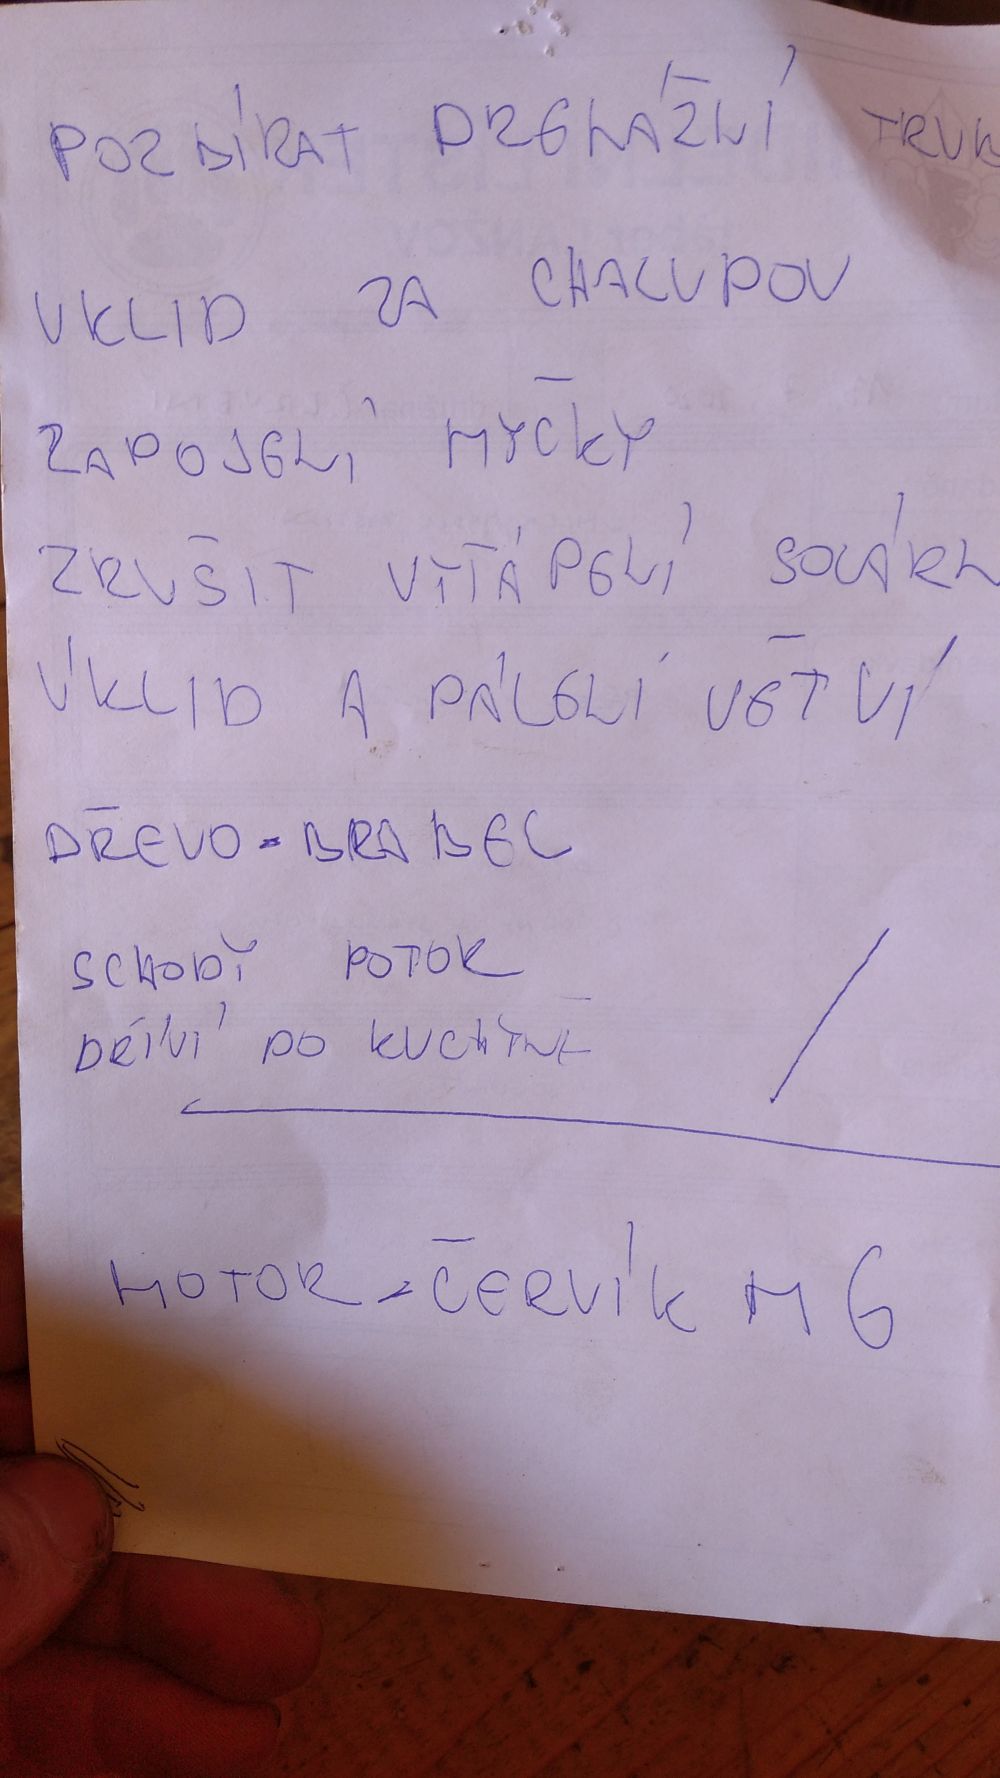 POZBÍRAT DRENÁŽNÍ TRUB
UKLID ZA CHALUPOU
ZAPOJENÍ MYČKY
ZRUŠIT VYTÁPĚNÍ SOLÁRN
ÚKLID A PÁLENÍ VĚTVÍ
DŘEVO - BRABEC
SCHODY POTOK
DŘÍVÍ DO KUCHYNĚ
MOTOR - ČERVÍK M6